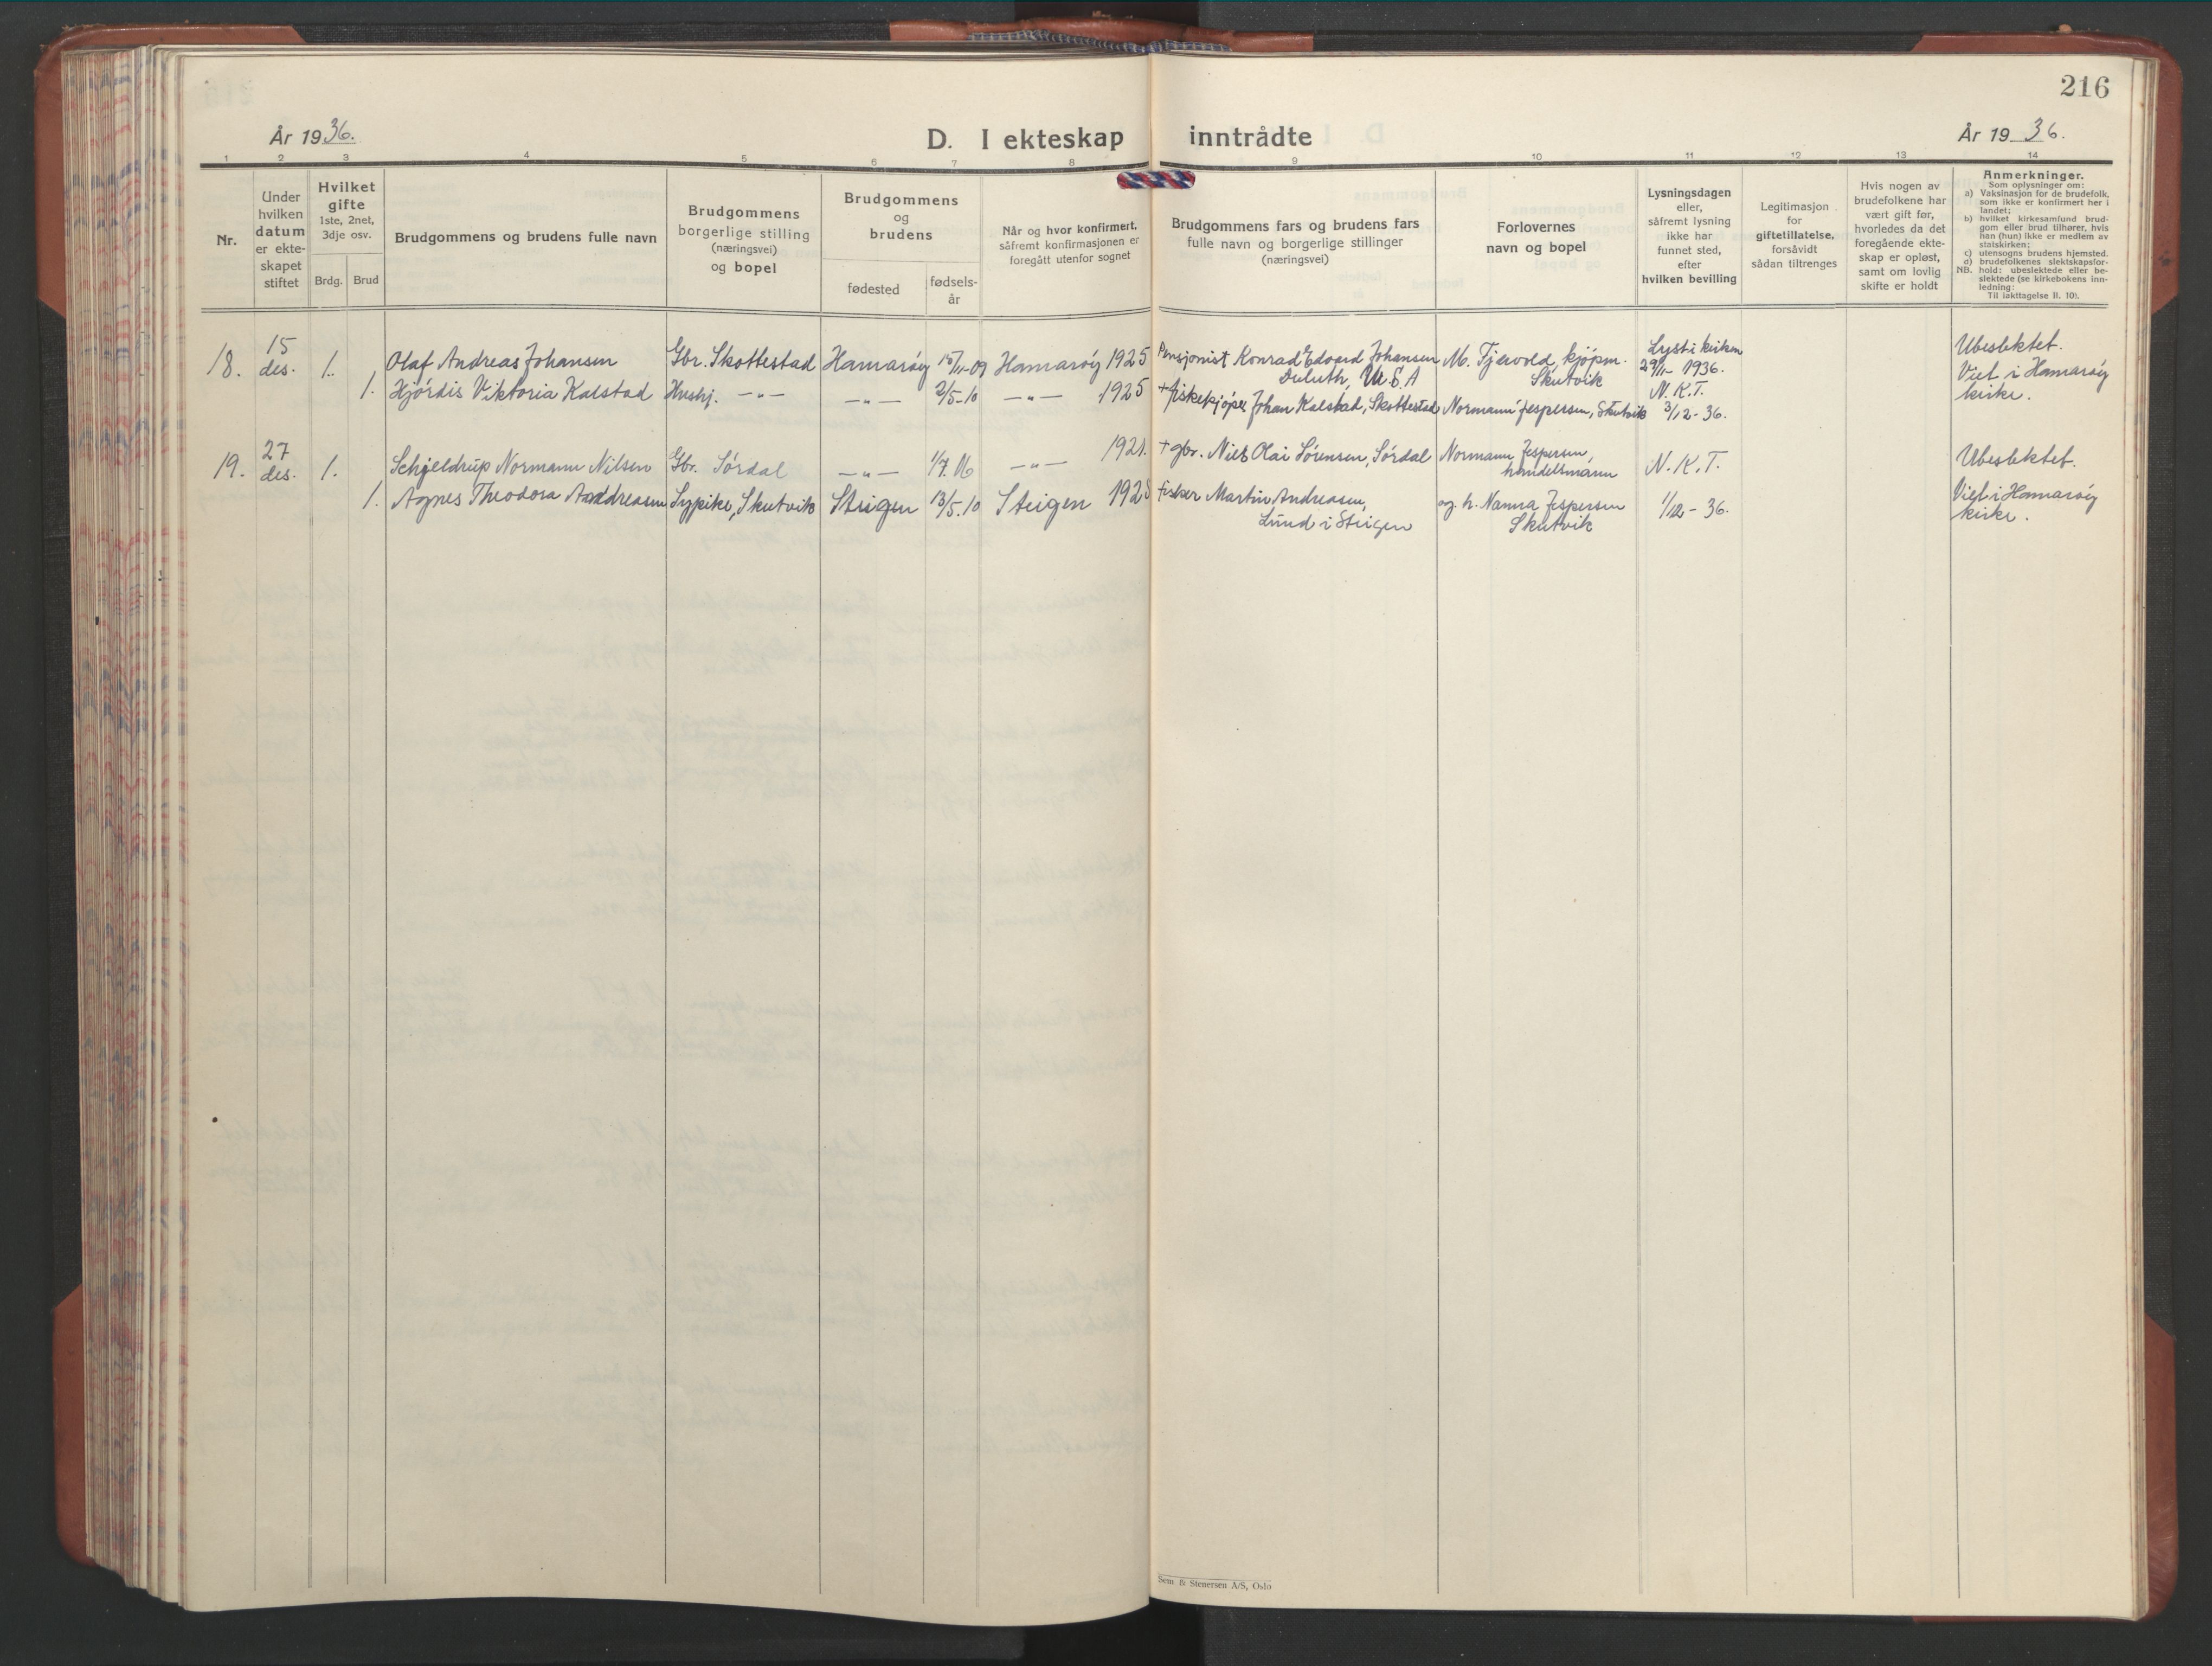 216
År 1936.
D. I ekteskap inntrådte
År 1936.
1 2 3 4 5 6 7 8 9 10 11 12 13 14
Nr.
Under
hvilken
datum
er ekte-
skapet
stiftet
Hvilket
gifte
1ste, 2net,
3dje osv.
Brdg. Brud
Brudgommens og brudens fulle navn
Brudgommens
borgerlige stilling
(næringsvei)
og bopel
Brudgommens
og
brudens
fødested
fødsels-
år
Når og hvor konfirmert,
såfremt konfirmasjonen er
foregått utenfor sognet
Brudgommens fars og brudens fars
fulle navn og borgerlige stillinger
(næringsvei)
Forlovernes
navn og bopel
Lysningsdagen
eller,
såfremt lysning
ikke har
funnet sted,
efter
hvilken bevilling
Legitimasjon
for
giftetillatelse,
forsåvidt
sådan tiltrenges
Hvis nogen av
brudefolkene har
vært gift før,
hvorledes da det
foregående ekte-
skap er opløst,
samt om lovlig
skifte er holdt
Anmerkninger.
Som oplysninger om:
a) Vaksinasjon for de brudefolk,
som ikke er konfirmert her i
landet;
b) hvilket kirkesamfund brud-
gom eller brud tilhører, hvis
han (hun) ikke er medlem av
statskirken;
c) utensogns brudens hjemsted.
d) brudefolkenes slektskapsfor-
NB. hold: ubeslektede eller be-
slektede (se kirkebokens inn-
ledning:
Til iakttagelse II. 10).
18.
15
des.
1.
Olaf Andreas Johansen
Gbr. Skottestad
Hamarøy
15/11-09
Hamarøy 1925
Pensjonist Konrad Edvard Johansen
Duluth, U.S.A
M. Tjervold, kjøpm.
Skutvik
Lyst i kirken
29/11- 1936.
N. K.T.
3/12-36.
Ubeslektet.
Viet i Hamarøy
kirke.
1.
Hjørdis Viktoria Kalstad
Hushj. -"-
-"-
2/5-10
-"- 1925
+ fiskekjøper Johan Kalstad, Skottestad
Normann Jespersen, Skutvik
19.
27
des.
1.
Schjeldrup Normann Nilsen
Gbr. Sørdal
-"-
1/7.06
-"- 1921.
+ gbr. Niels Olai Sørensen, Sørdal
Normann Jespersen,
handelsmann
N. K.T.
1/12-36.
Ubeslektet.
Viet i Hamarøy
kirke.
1.
Agnes Theodora Andreasen
Sypike, Skutvik
Steigen
13/5.10
Steigen 1925
fisker Martin Andreasen,
Lund i Steigen
og h. Nanna Jespersen
Skutvik
Sem & Stenersen A/S, Oslo